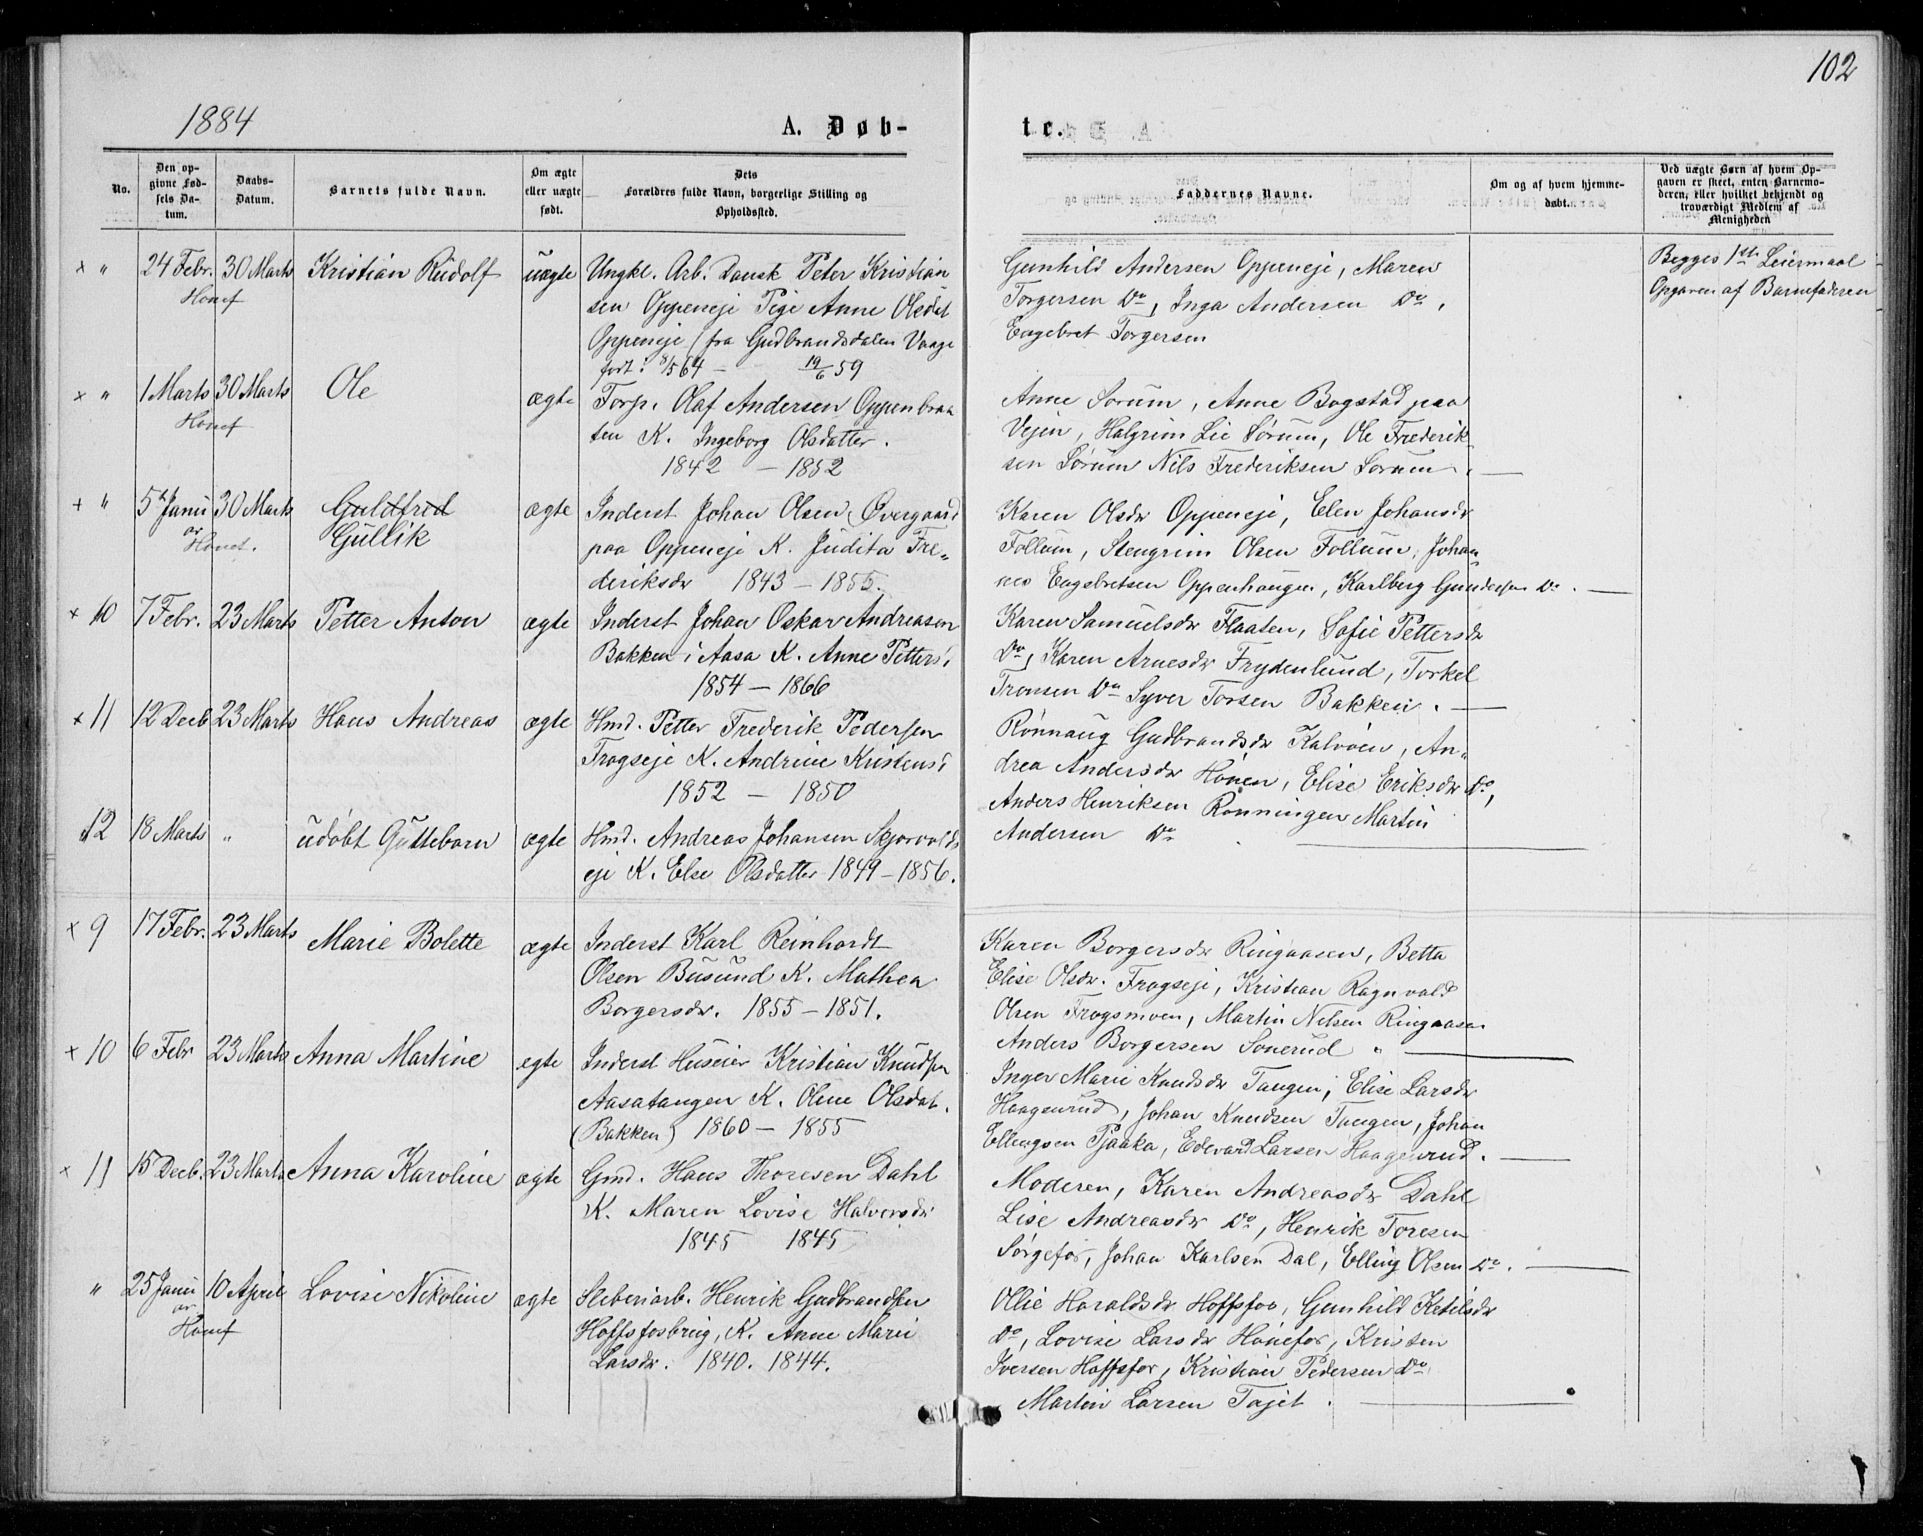 102
1884
A. Døb-
te.
No.
Den op-
givne Fød-
sels Da-
tum.
Daabs-
Datum.
Barnets fulde Navn.
Om ægte
eller uægte
født.
Dets
Forældres fulde Navn, borgerlige Stilling og
Opholdssted.
Faddernes Navne.
Om og af hvem hjemme-
døbt.
Ved uægte Børn af hvem Op-
gaven er skeet, enten Barnemo-
deren, eller hvilket bekjendt og
troværdigt Medlem af
Menigheden
× " 24 Febr. 30 Marts Kristian Rudolf uægte Ungkl. Arb. Dansk Peter Kristian
Honef
sen Oppeneje Pige Anne Olsdat
Oppeneje (fra Gudbrandsdalen Vaage
født: 8/5 64 - 19/6 59
Gunhild Andersen Oppeneje, Maren
Torgersen Do, Inga Andersen Do,
Engebret Torgersen
Begges 1ste Leiermaal
Opgaven af Barnefaderen
× " 1 Marts 30 Marts Ole ægte Torp. Olaf Andersen Oppenbraa
Honef
ten K. Ingeborg Olsdatter.
1842 - 1852
Anne Sorum, Anne Bogstad paa
Vejen, Halgrim Lie Sørum, Ole Frederik
sen Sørum Nils Frederiksen Sorum.
+ " 5 Janu 30 Marts Guldfred ægte Inderst Johan Olsen Øvergaard
ar
Honef.
Gullik
paa Oppeneje K. Judita Fre-
deriksdr 1843 - 1855.
Karen Olsdr Oppeneje, Elen Johansdr
Follum, Stengrim Olsen Follum, Johan
nes Engebretsen Oppenhaugen, Karlberg Gundersen Do.
× 10 7 Febr. 23 Marts Petter Anton ægte Inderst Johan Oskar Andreasen
Bakken i Aasa K. Anne Petters'
1854 - 1866
Karen Samuelsdr Flaaten, Sofie Pettersdr
Do, Karen Arnesdr Frydenlund, Torkel
Tronsen Do Syver Torsen Bakken.
× 11 12 Decb 23 Marts Hans Andreas ægte Hmd. Petter Frederik Pedersen
Frogseje K. Andrine Kristens'
1852 - 1850
Rönnaug Gudbrandsdr Kalvöen, An-
drea Andersdr Hönen, Elise Eriksdr Do,
Anders Henriksen Rönningen Martin
Andersen Do
12 18 Marts " udøbt Guttebarn ægte Hmd. Andreas Johansen Skjorvolds
eje K. Else Olsdatter 1849 - 1856.
× 9 17 Febr. 23 Marts Marie Bolette ægte Inderst Karl Reinhardt
Olsen Busund K. Mathea
Borgersdr. 1855 - 1851.
Karen Borgersdr Ringaasen, Betta
Elise Olsdr. Frogseje, Kristian Ragnvald
Olsen Frogsmoen, Martin Nilsen Ringaasen
Anders Borgersen Sonerud "
× 10 6 Febr 23 Marts Anna Martine egte Inderst Huseier Kristian Knudsen
Aasatangen K. Oline Olsdat.
(Bakken) 1860 - 1855
Inger Marie Knudsdr Tangen, Elise Larsdr
Haagenrud, Johan Knudsen Tangen, Johan
Ellingsen Pjaaka, Edevard Larsen Haagenrud.
× 11 15 Decb. 23 Marts Anna Karoline ægte Gmd. Hans Thoresen Dahl
K. Maren Lovise Halvorsdr
1845 1845
Moderen, Karen Andreasdr Dahl
Lise Andreasdr Do, Henrik Toresen
Sørgefos, Johan Karlsen Dal, Elling Olsen Do.
" 25 Janu 10 April Lovise Nikoline ægte Sliberiarb. Henrik Gudbrandsen
ar
Honef
Hoffsfosbrug, K. Anne Marie
Larsdr. 1840. 1844.
Ollie Haraldsdr Hoffsfos, Gunhild Ketilsdr
Do, Lovise Larsdr Hönefos, Kristen
Iversen Hoffsfos, Kristian Pedersen Do
Martin Larsen Tajet.